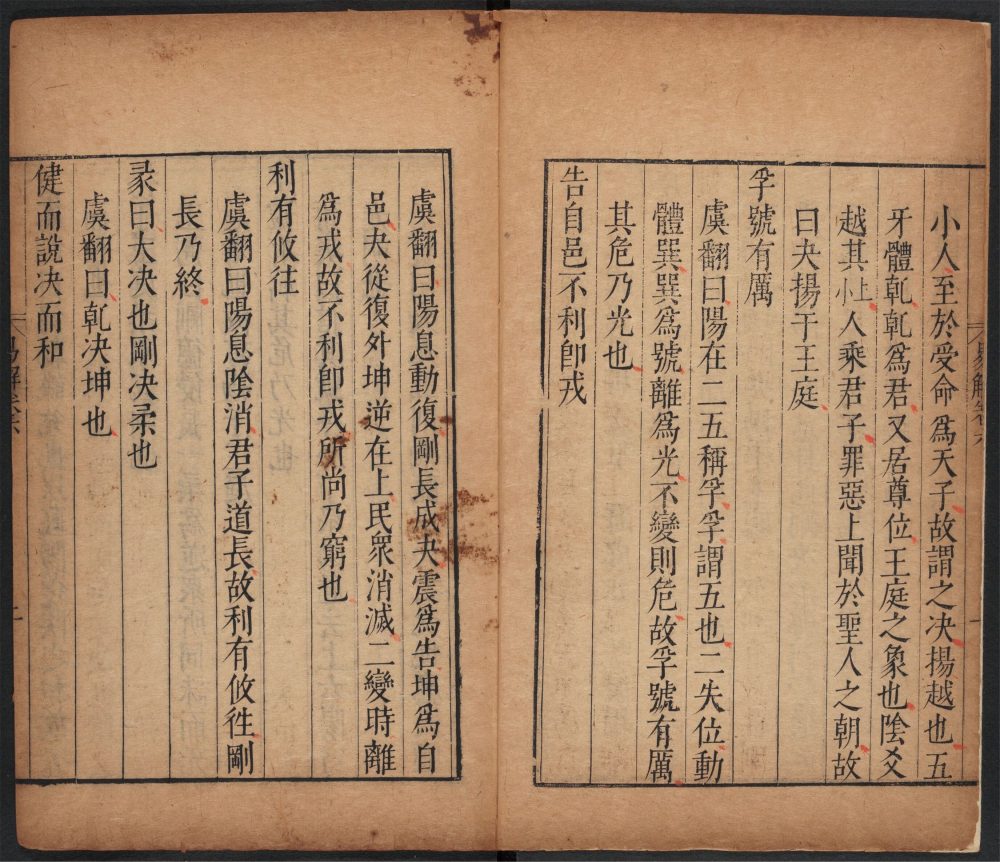 小人至於受命爲天子故謂之決揚越也五
牙體乹乹爲君又居尊位王庭之象也陰爻
越其上小人乘君子罪惡上聞於聖人之朝故
曰夬揚于王庭
孚號有厲
虞翻曰陽在二五稱孚孚謂五也二失位動
體巽巽爲號離爲光不變則危故孚號有厲
其危乃光也
告自邑不利卽戎
虞翻曰陽息動復剛長成夬震爲告坤爲自
邑夬從復外坤逆在上民衆消滅二變時離
爲戎故不利卽戎所尚乃窮也
利有攸往
虞翻曰陽息陰消君子道長故利有攸往剛
長乃終
彖曰夬决也剛决柔也
虞翻曰乹决坤也
健而說决而和